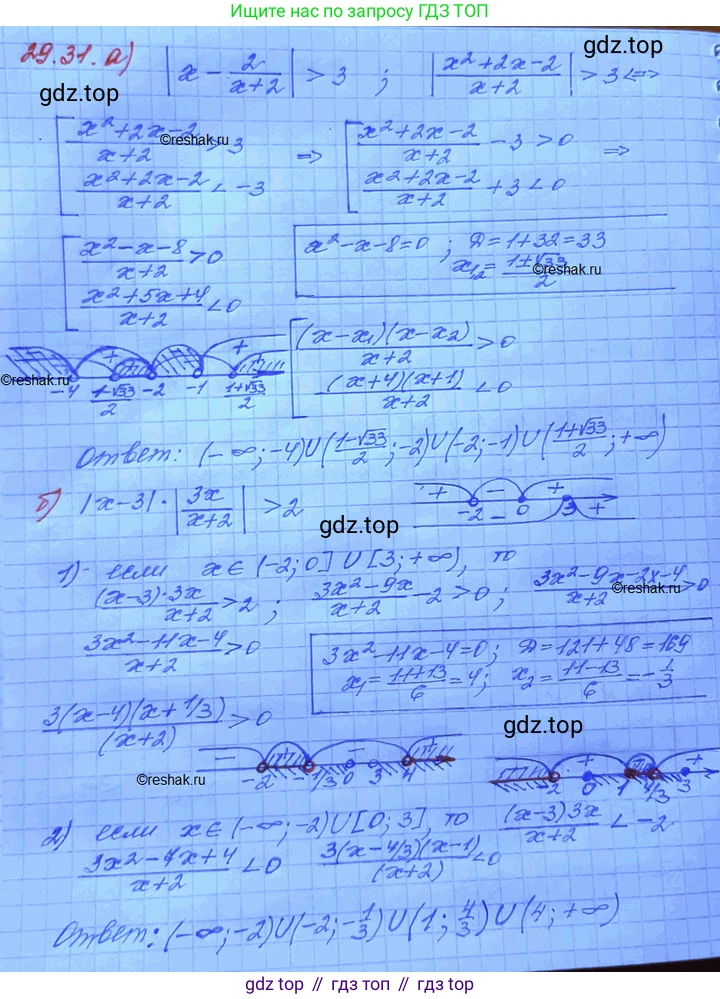 Ищите нас по запросу ГДЗ ТОП
29.31. а) |x - 2/(x+2)| > 3 ; |(x²+2x-2)/(x+2)| > 3 <=>
gdz.top
gdz.top
[ (x²+2x-2)/(x+2) > 3 => [ (x²+2x-2)/(x+2) - 3 > 0 =>
©reshak.ru
(x²+2x-2)/(x+2) < -3 (x²+2x-2)/(x+2) + 3 < 0
[ (x²-x-8)/(x+2) > 0 x²-x-8=0 ; Д=1+32=33
(x²+5x+4)/(x+2) < 0 x₁,₂ = (1±√33)/2
©reshak.ru
+ + [ (x-x₁)(x-x₂)/(x+2) > 0
©reshak.ru
-4 (1-√33)/2 -2 -1 (1+√33)/2 (x+4)(x+1)/(x+2) < 0
Ответ: (-∞;-4)∪((1-√33)/2;-2)∪(-2;-1)∪((1+√33)/2;+∞)
б) |x-3|·|3x/(x+2)| > 2 + - + -2 - 0 3 +
gdz.top
1) если x∈(-2;0]∪[3;+∞), то
(x-3)·3x/(x+2) > 2 ; (3x²-9x)/(x+2) - 2 > 0 ; (3x²-9x-2x-4)/(x+2) > 0
©reshak.ru
(3x²-11x-4)/(x+2) > 0 3x²-11x-4=0; Д=121+48=169
x₁=(11+13)/6=4; x₂=(11-13)/6=-1/3
3(x-4)(x+1/3)/(x+2) > 0
gdz.top
- + - + -2 -1/3 0 3 4 - + -2 0 1 4/3 3 +
©reshak.ru
2) если x∈(-∞;-2)∪[0;3], то (x-3)3x/(x+2) < -2
(3x²-7x+4)/(x+2) < 0 3(x-4/3)(x-1)/(x+2) < 0
Ответ: (-∞;-2)∪(-2;-1/3)∪(1;4/3)∪(4;+∞)
gdz.top // gdz.top // gdz.top